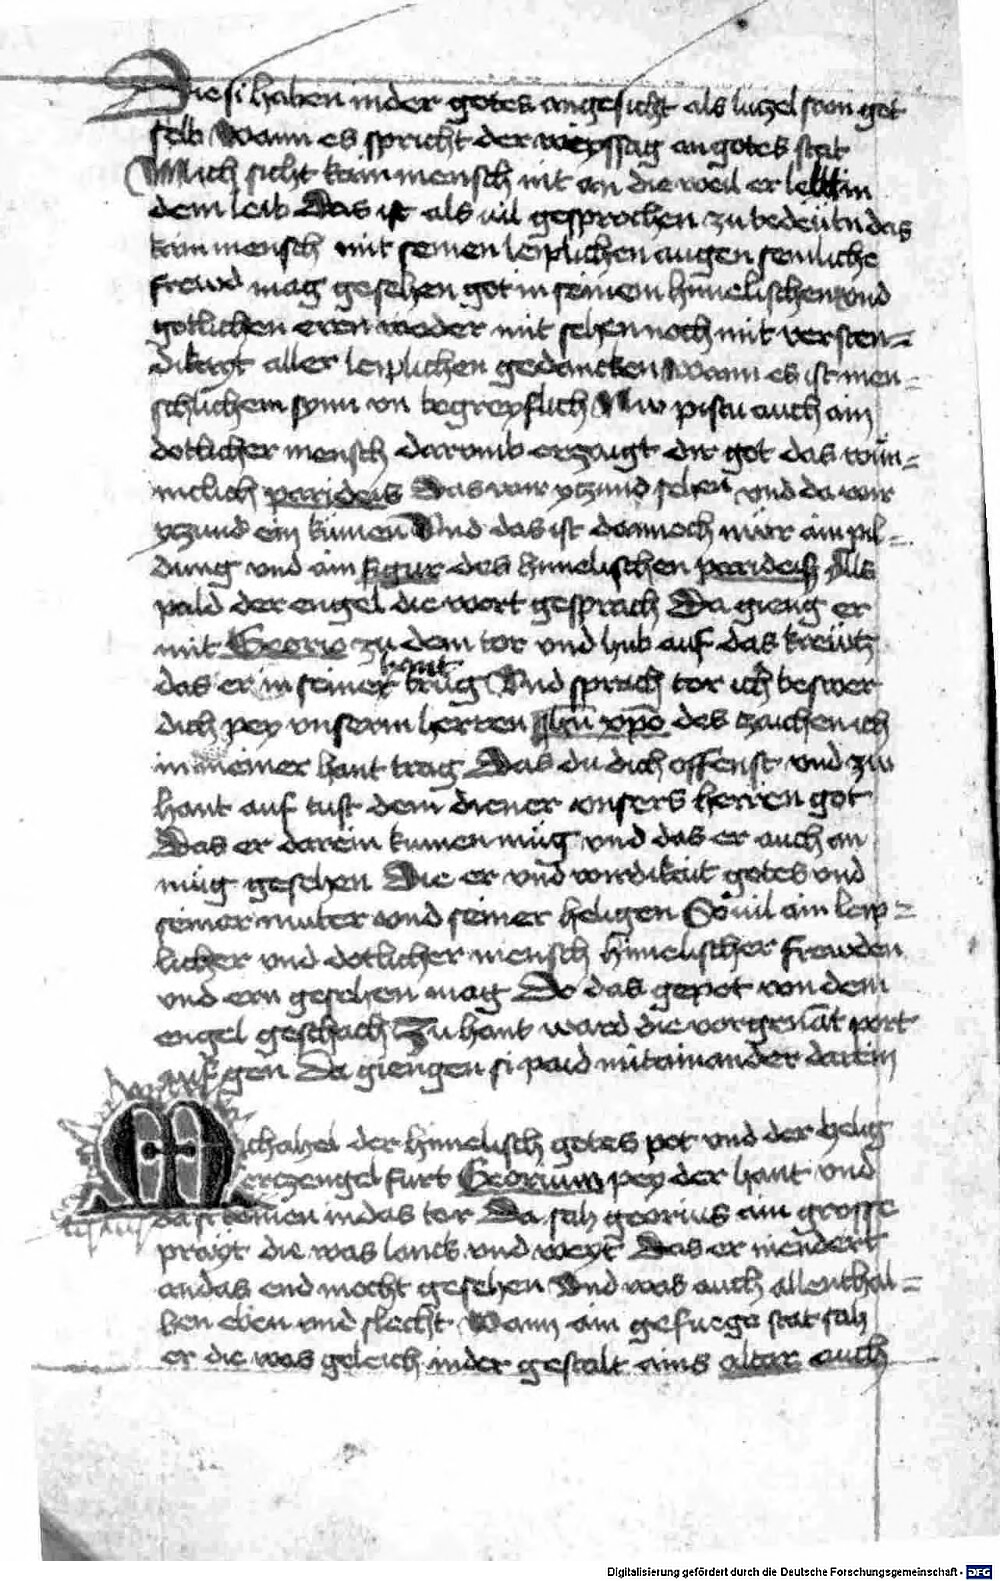 Die si haben in der gotes angesicht als luczel sam got
selb Wann es spricht der weyssag an gotes stat
Mich sicht kain mensch nit an die weil er lebt in
dem leib Das ist als vil gesprochen zu bedeutn das
kain mensch mit seinen leiplichen augen semliche
frewd mag gesehen got in seinem himelischen vnd
gotlichen eren weder mit sehen noch mit versten=
dikayt aller leiplichen gedancken Wann es ist men=
schlichem synn vn begreyflich Nw pistu auch ain
dotlicher mensch darumb erzaigt dir got das wün=
niclich paradeis Das wir yczund sehen vnd da wir
yczund ein kumen Vnd das ist dannoch nüor ain pil=
dung vnd ain figur des himelischen paradeis Als
pald der engel die wort gesprach Da gieng er
mit Georio zu dem tor vnd hub auf das kreütz
das er in seiner hant trüg Vnd sprach tor ich beswer
dich pey vnserm herren jhu xpo des zaichen ich
in meiner hant trag Das du dich offenst vnd zu
hant auf tust dem diener vnsers herren got
Das er darein kumen müg vnd das er auch an
müg gesehen Die er vnd wirdikait gotes vnd
seiner muter vnd seiner heligen So vil ain leip=
licher vnd dotlicher mensch himelischer frewden
vnd ern gesehen mag Do das gepot von dem
engel geschach Zu hant ward die vorgenāt port
auf gen Da giengen si paid mitainander darein
Michahel der himelisch gotes pot vnd der helig
erczengel furt Georium pey der hant vnd
da si komen in das tor Da sah georius ain grosse
prayt die was lanck vnd weyt Das er niendert
an das end mocht gesehen Vnd was auch allenthal=
ben eben vnd slecht Wann ain gefuege stat sah
er die was geleich in der gestalt ains altar auch
Digitalisierung gefördert durch die Deutsche Forschungsgemeinschaft - DFG